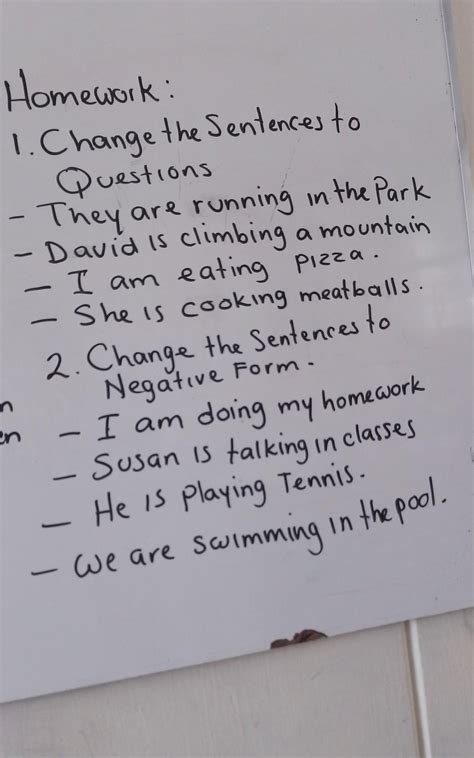 Homework:
1. Change the Sentences to
Questions
- They are running in the Park
- David is climbing a mountain
- I am eating Pizza.
- She is cooking meatballs.
2. Change the Sentences to
Negative Form.
- I am doing my homework
- Susan is talking in classes
- He is Playing Tennis.
- We are swimming in the pool.